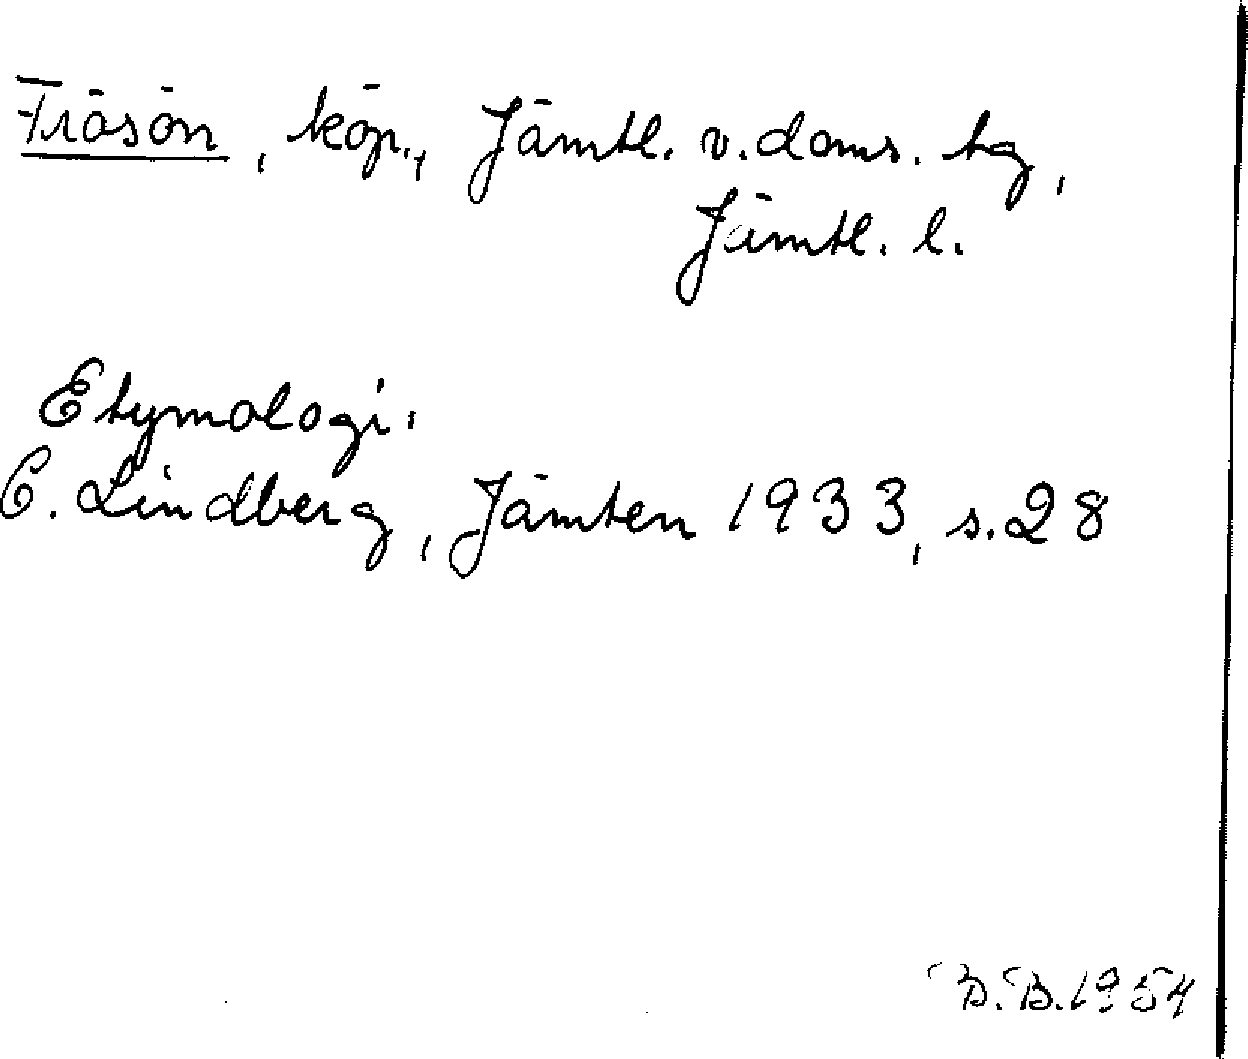 Frösön, köp., Jämtl. v. doms. tg,
Jämtl. l.
Etymologi.
C. Lindberg, Jämten 1933, s. 28
B. B. 1954